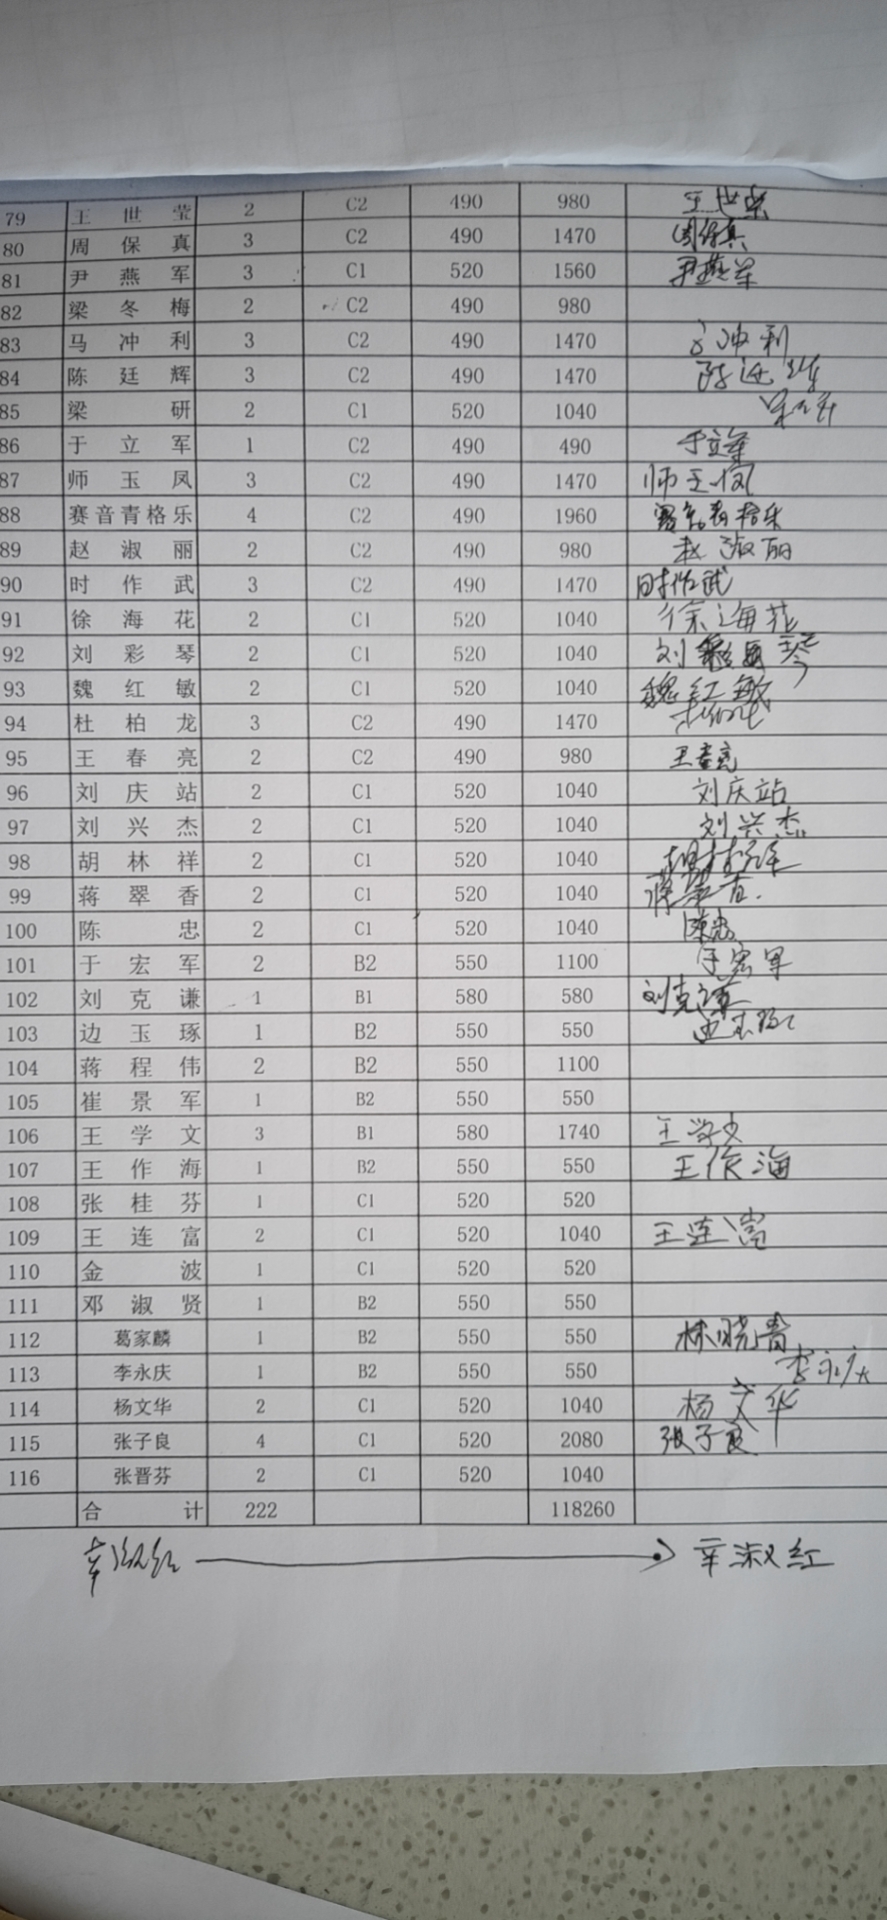 79 王世莹 2 C2 490 980 王世荣
80 周保真 3 C2 490 1470 周保真
81 尹燕军 3 C1 520 1560 尹燕军
82 梁冬梅 2 C2 490 980
83 马冲利 3 C2 490 1470 冲利
84 陈廷辉 3 C2 490 1470 陈廷辉
85 梁研 2 C1 520 1040
86 于立军 1 C2 490 490 于立军
87 师玉凤 3 C2 490 1470 师玉凤
88 赛音青格乐 4 C2 490 1960 赛音青格乐
89 赵淑丽 2 C2 490 980 赵淑丽
90 时作武 3 C2 490 1470 时作武
91 徐海花 2 C1 520 1040 徐海花
92 刘彩琴 2 C1 520 1040 刘彩琴
93 魏红敏 2 C1 520 1040 魏红敏
94 杜柏龙 3 C2 490 1470 杜柏龙
95 王春亮 2 C2 490 980 王春亮
96 刘庆站 2 C1 520 1040 刘庆站
97 刘兴杰 2 C1 520 1040 刘兴杰
98 胡林祥 2 C1 520 1040 胡林祥
99 蒋翠香 2 C1 520 1040 蒋翠香
100 陈忠 2 C1 520 1040 陈忠
101 于宏军 2 B2 550 1100 于宏军
102 刘克谦 1 B1 580 580 刘克谦
103 边玉琢 1 B2 550 550 边玉琢
104 蒋程伟 2 B2 550 1100
105 崔景军 1 B2 550 550
106 王学文 3 B1 580 1740 王学文
107 王作海 1 B2 550 550 王作海
108 张桂芬 1 C1 520 520
109 王连富 2 C1 520 1040 王连富
110 金波 1 C1 520 520
111 邓淑贤 1 B2 550 550
112 葛家麟 1 B2 550 550 林晓青
113 李永庆 1 B2 550 550 李永庆
114 杨文华 2 C1 520 1040 杨文华
115 张子良 4 C1 520 2080 张子良
116 张晋芬 2 C1 520 1040
合计 222 118260
辛淑红 辛淑红